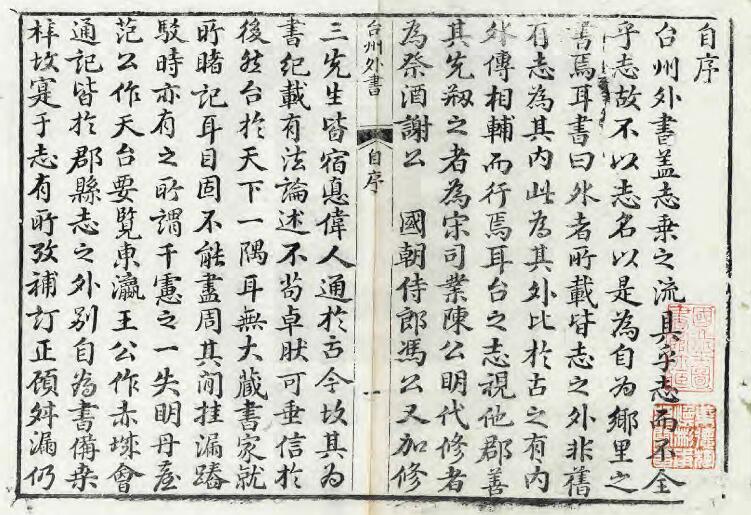 自序
台州外書蓋志乗之流具乎志而不全
乎志故不以志名以是為自為鄉里之
書焉耳書曰外者所載皆志之外非舊
有志為其内此為其外比於古之有内
外傳相輔而行焉耳台之志視他郡善
其先剏之者為宋司業陳公明代修者
為祭酒謝公　國朝侍郎馮公又加修
台州外書
自序
一
三先生皆宿悳偉人通於古今故其為
書紀載有法論述不苟卓肰可垂信於
後然台於天下一隅耳無大藏書家就
所睹記耳目固不能盡周其閒挂漏蹖
駁時亦有之所謂千慮之一失明丹崖
范公作天台要覽東瀛王公作赤城會
通記皆於郡縣志之外别自為書備桒
梓故寔于志有所攷補訂正顧舛漏仍